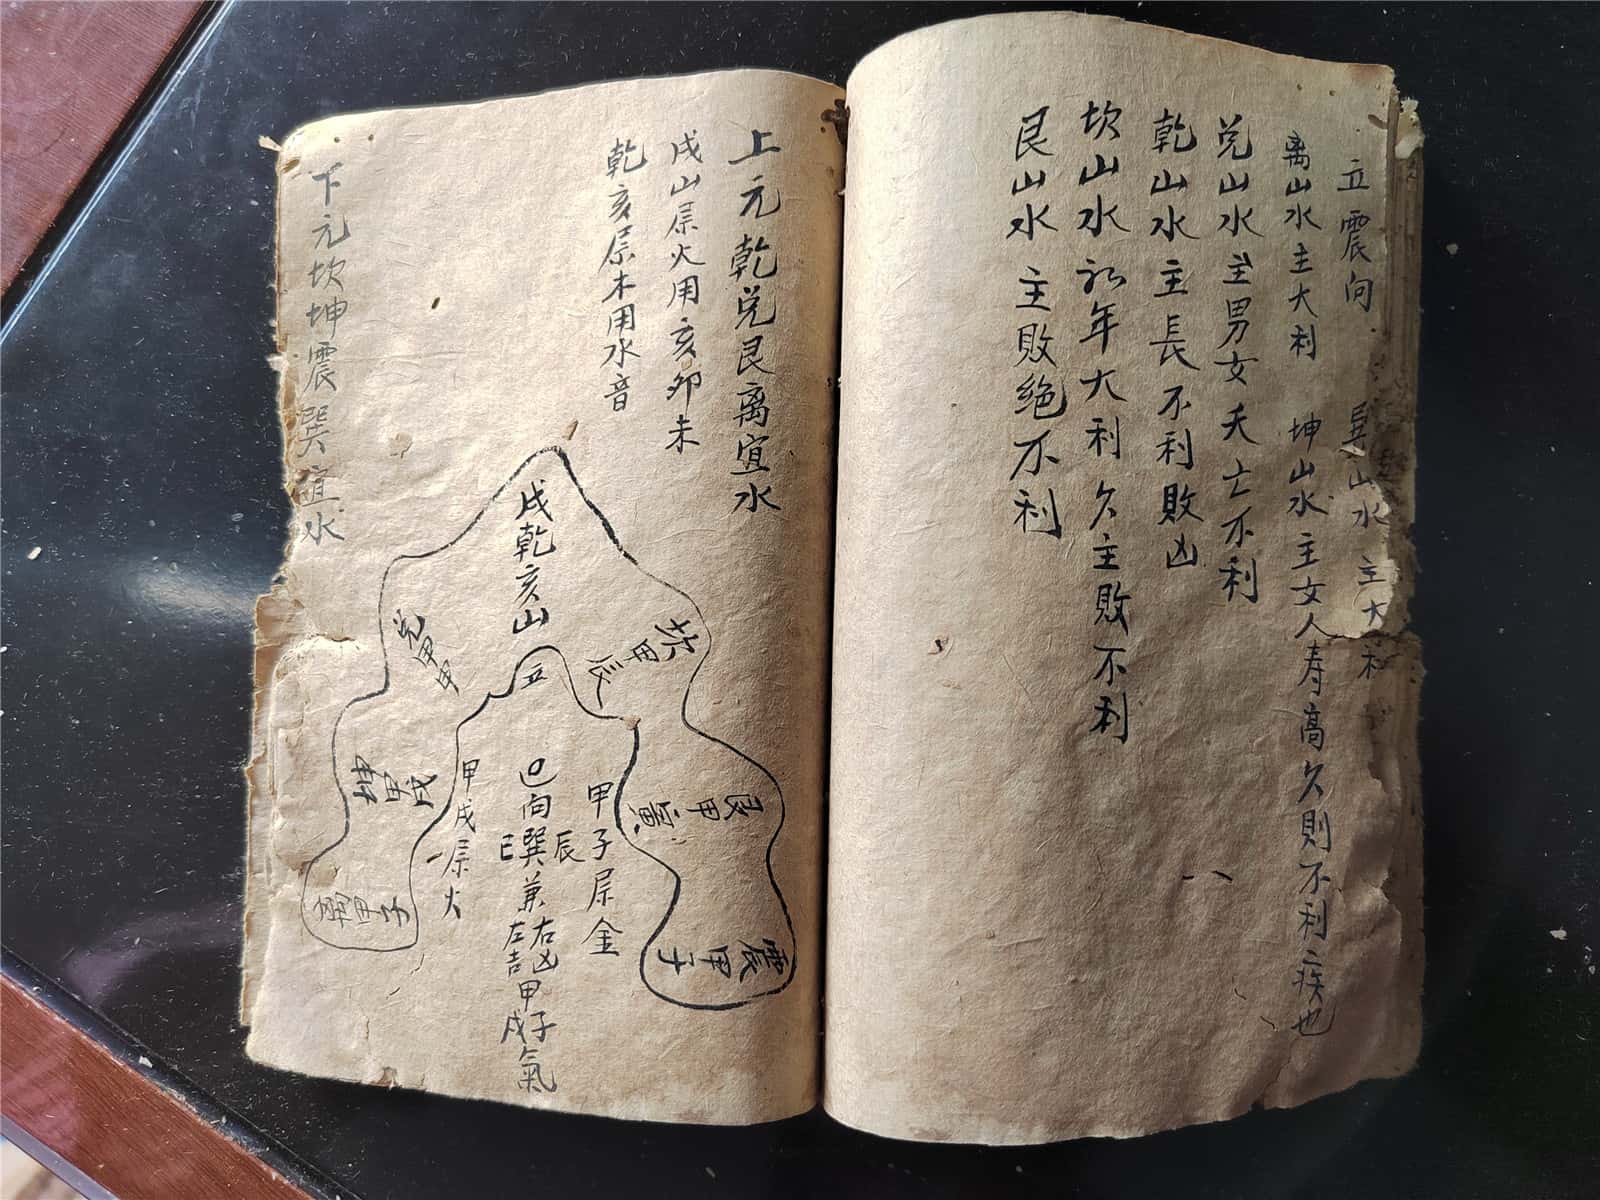 立震向 巽山水主大利
离山水主大利 坤山水主女人寿高久則不利疾也
兑山水主男女夭亡不利
乾山水主長不利敗凶
坎山水初年大利久主敗不利
艮山水主敗絶不利
上元乾兑艮离宜水
戌山屌火用亥卯未
乾亥屌木用水音
戌乾亥山
坎甲辰
艮甲寅
震甲子
兑甲申
坤甲戌
甲子
立
甲子屌金
向巽兼
巳 辰
右凶
左吉
甲子
戌氣
甲戌屌火
下元坎坤震巽宜水